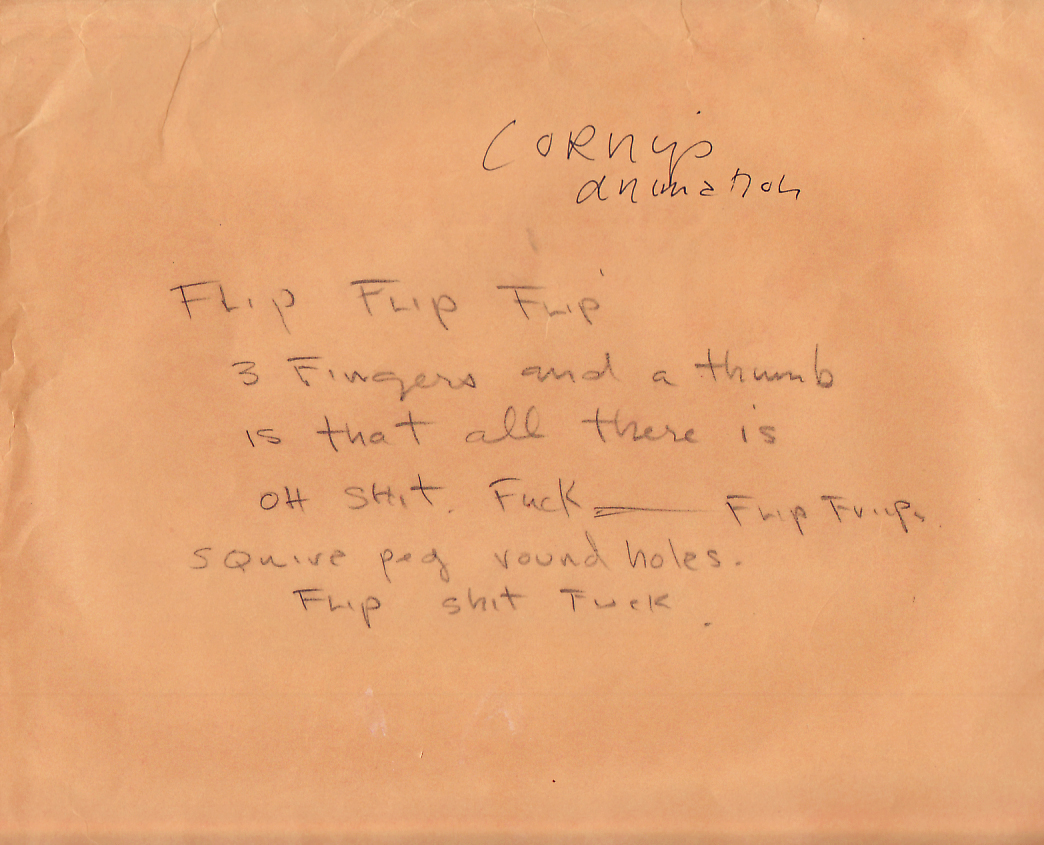 CORNY's
animation
FLip FLip FLip
3 Fingers and a thumb
is that all there is
OH SHit. Fuck — FLip FLip.
squire peg round holes.
FLip shit Fuck.